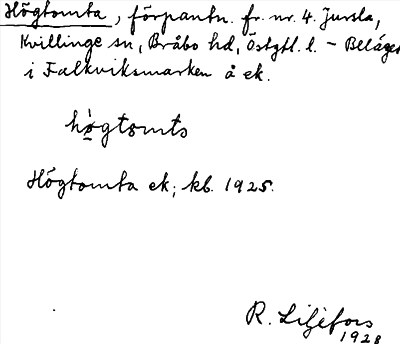 Högtomta, förpantn. fr. nr. 4. Jursla,
Kvillinge sn, Bråbo hd, Östgtl. l. – Beläget
i Falkviksmarken å ek.
högtomts
Högtomta ek; kb. 1925.
R. Liljefors
1928